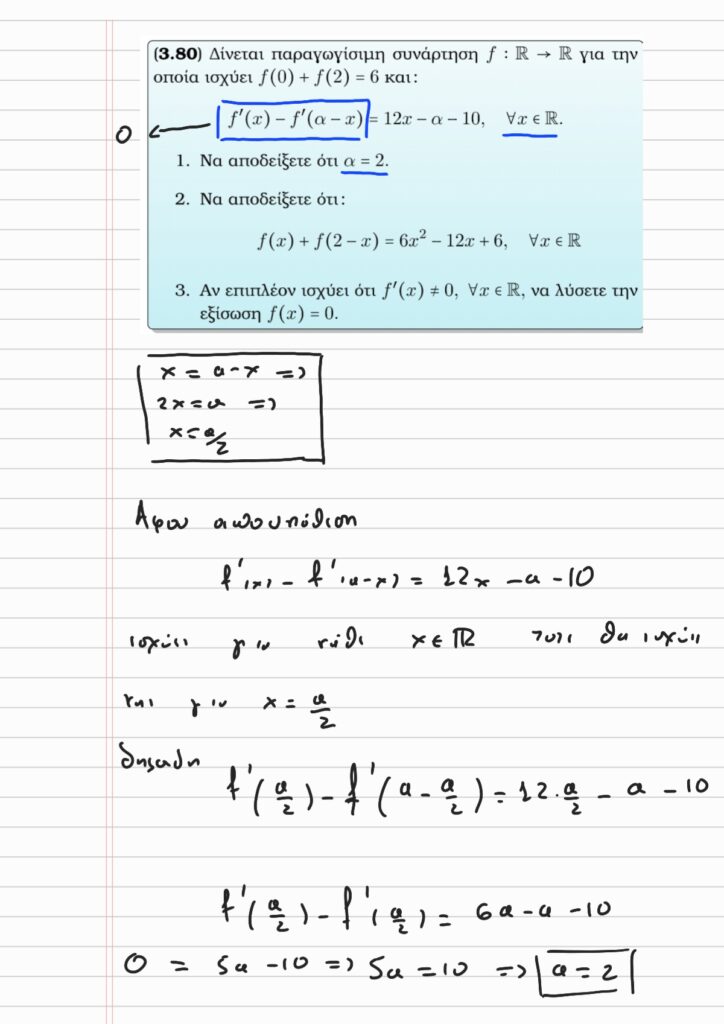 (3.80) Δίνεται παραγωγίσιμη συνάρτηση f : ℝ → ℝ για την
οποία ισχύει f(0) + f(2) = 6 και:
0 ← f′(x) − f′(α − x) = 12x − α − 10, ∀x ∈ ℝ.
1. Να αποδείξετε ότι α = 2.
2. Να αποδείξετε ότι:
f(x) + f(2 − x) = 6x² − 12x + 6, ∀x ∈ ℝ
3. Αν επιπλέον ισχύει ότι f′(x) ≠ 0, ∀x ∈ ℝ, να λύσετε την
εξίσωση f(x) = 0.
x = α - x =>
2x = α =>
x = α/2
Αφου απο υπόθεση
f'(x) - f'(α-x) = 12x - α - 10
ισχύει για κάθε x ∈ ℝ τοτε θα ισχύει
και για x = α/2
δηλαδη
f'(α/2) - f'(α - α/2) = 12·α/2 - α - 10
f'(α/2) - f'(α/2) = 6α - α - 10
0 = 5α - 10 => 5α = 10 => α = 2